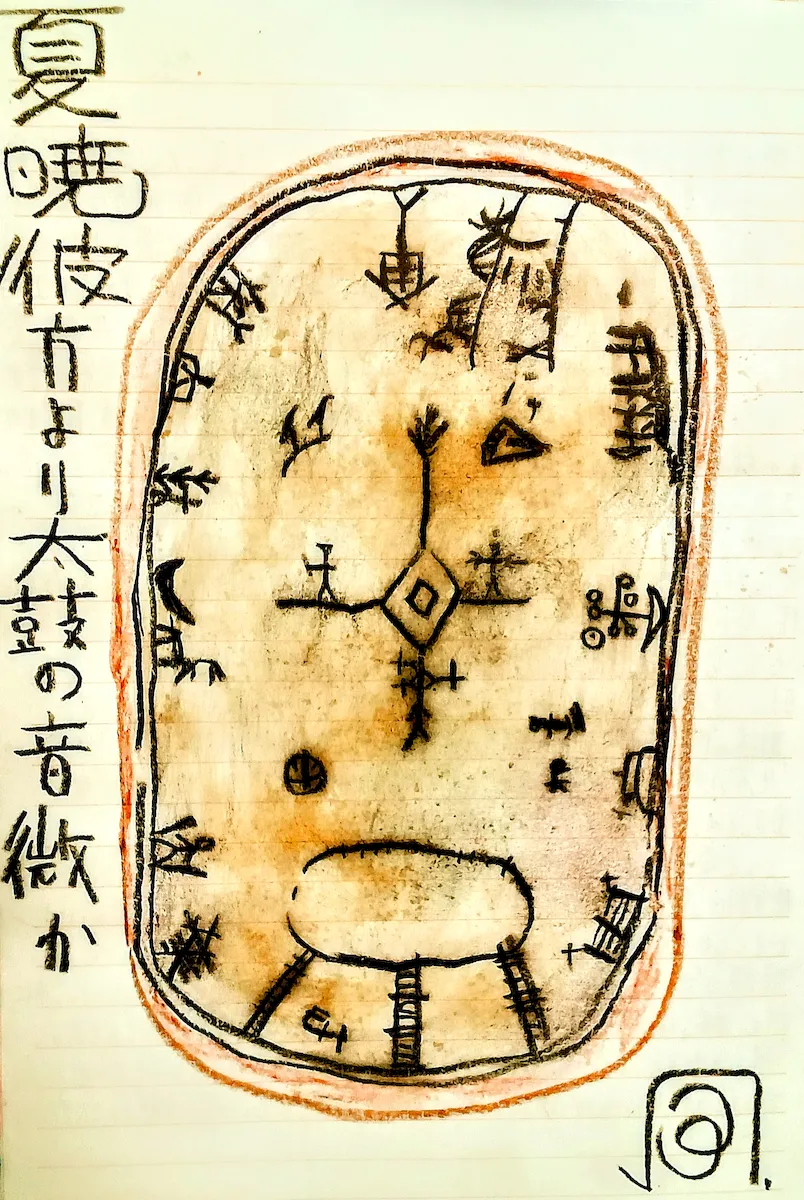 夏暁彼方より太鼓の音微か